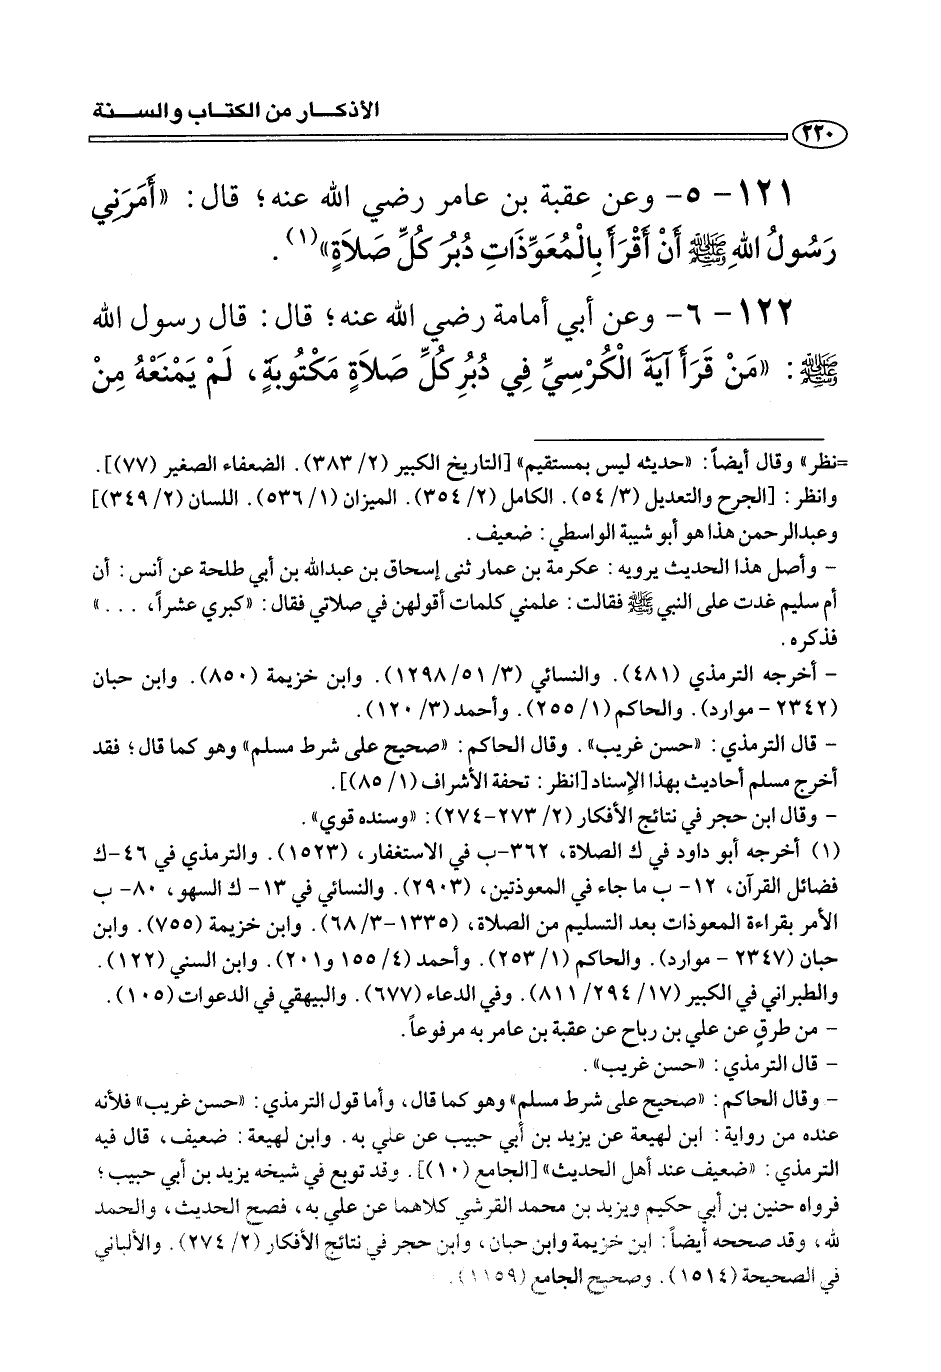 الأذكـــار من الكتـاب والســـنة
٢٢٠
١٢١- ٥- وعن عقبة بن عامر رضي الله عنه؛ قال: «أَمَرَنِي
رَسُولُ اللهِ ﷺ أَنْ أَقْرَأَ بِالْمُعَوِّذَاتِ دُبُرَ كُلِّ صَلاَةٍ»(١).
١٢٢- ٦- وعن أبي أمامة رضي الله عنه؛ قال: قال رسول الله
ﷺ: «مَنْ قَرَأَ آيَةَ الْكُرْسِيِّ فِي دُبُرِ كُلِّ صَلاَةٍ مَكْتُوبَةٍ، لَمْ يَمْنَعْهُ مِنْ
=نظر» وقال أيضاً: «حديثه ليس بمستقيم» [التاريخ الكبير (٢/ ٣٨٣). الضعفاء الصغير (٧٧)].
وانظر: [الجرح والتعديل (٣/ ٥٤). الكامل (٢/ ٣٥٤). الميزان (١/ ٥٣٦). اللسان (٢/ ٣٤٩)]
وعبدالرحمن هذا هو أبو شيبة الواسطي: ضعيف.
- وأصل هذا الحديث يرويه: عكرمة بن عمار ثنى إسحاق بن عبدالله بن أبي طلحة عن أنس: أن
أم سليم غدت على النبي ﷺ فقالت: علمني كلمات أقولهن في صلاتي فقال: «كبري عشراً، ...»
فذكره.
- أخرجه الترمذي (٤٨١). والنسائي (٣/ ٥١/ ١٢٩٨). وابن خزيمة (٨٥٠). وابن حبان
(٢٣٤٢ - موارد). والحاكم (١/ ٢٥٥). وأحمد (٣/ ١٢٠).
- قال الترمذي: «حسن غريب». وقال الحاكم: «صحيح على شرط مسلم» وهو كما قال؛ فقد
أخرج مسلم أحاديث بهذا الإسناد [انظر: تحفة الأشراف (١/ ٨٥)].
- وقال ابن حجر في نتائج الأفكار (٢/ ٢٧٣-٢٧٤): «وسنده قوي».
(١) أخرجه أبو داود في ك الصلاة، ٣٦٢-ب في الاستغفار، (١٥٢٣). والترمذي في ٤٦-ك
فضائل القرآن، ١٢- ب ما جاء في المعوذتين، (٢٩٠٣). والنسائي في ١٣- ك السهو، ٨٠- ب
الأمر بقراءة المعوذات بعد التسليم من الصلاة، (١٣٣٥-٣/ ٦٨). وابن خزيمة (٧٥٥). وابن
حبان (٢٣٤٧ - موارد). والحاكم (١/ ٢٥٣). وأحمد (٤/ ١٥٥ و٢٠١). وابن السني (١٢٢).
والطبراني في الكبير (١٧/ ٢٩٤/ ٨١١). وفي الدعاء (٦٧٧). والبيهقي في الدعوات (١٠٥).
- من طرقٍ عن علي بن رباح عن عقبة بن عامر به مرفوعاً.
- قال الترمذي: «حسن غريب».
- وقال الحاكم: «صحيح على شرط مسلم» وهو كما قال، وأما قول الترمذي: «حسن غريب» فلأنه
عنده من رواية: ابن لهيعة عن يزيد بن أبي حبيب عن علي به. وابن لهيعة: ضعيف، قال فيه
الترمذي: «ضعيف عند أهل الحديث» [الجامع (١٠)]. وقد توبع في شيخه يزيد بن أبي حبيب؛
فرواه حنين بن أبي حكيم ويزيد بن محمد القرشي كلاهما عن علي به، فصح الحديث، والحمد
لله، وقد صححه أيضاً: ابن خزيمة وابن حبان، وابن حجر في نتائج الأفكار (٢/ ٢٧٤). والألباني
في الصحيحة (١٥١٤). وصحيح الجامع (١١٥٩).